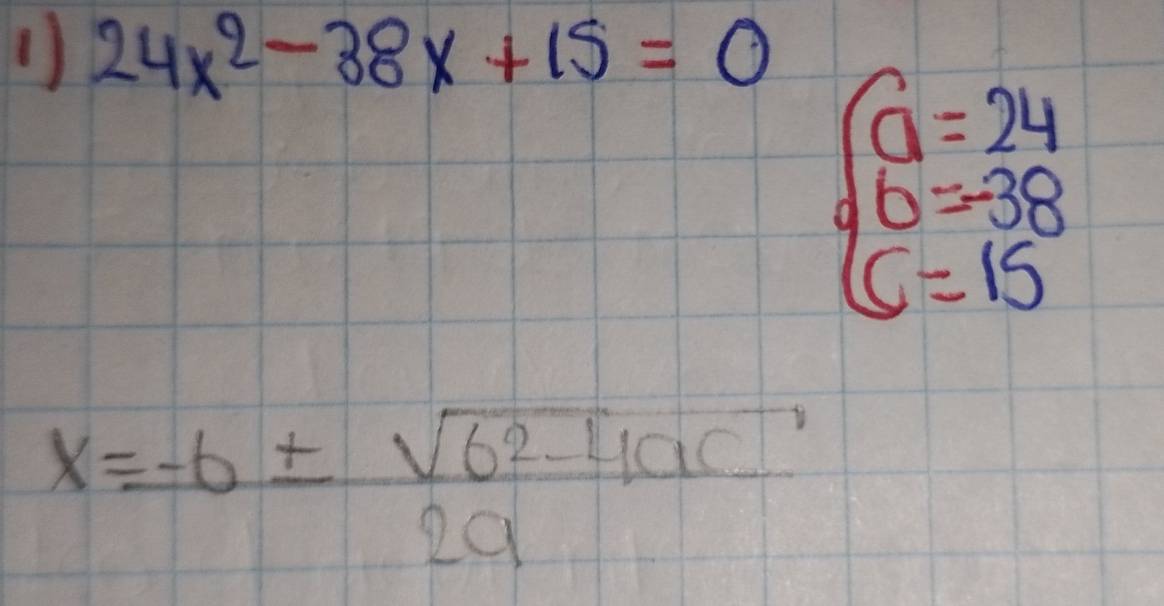 1) 24x² - 38x + 15 = 0
a = 24
b = -38
c = 15
x = -b ± √b² - 4ac
2a